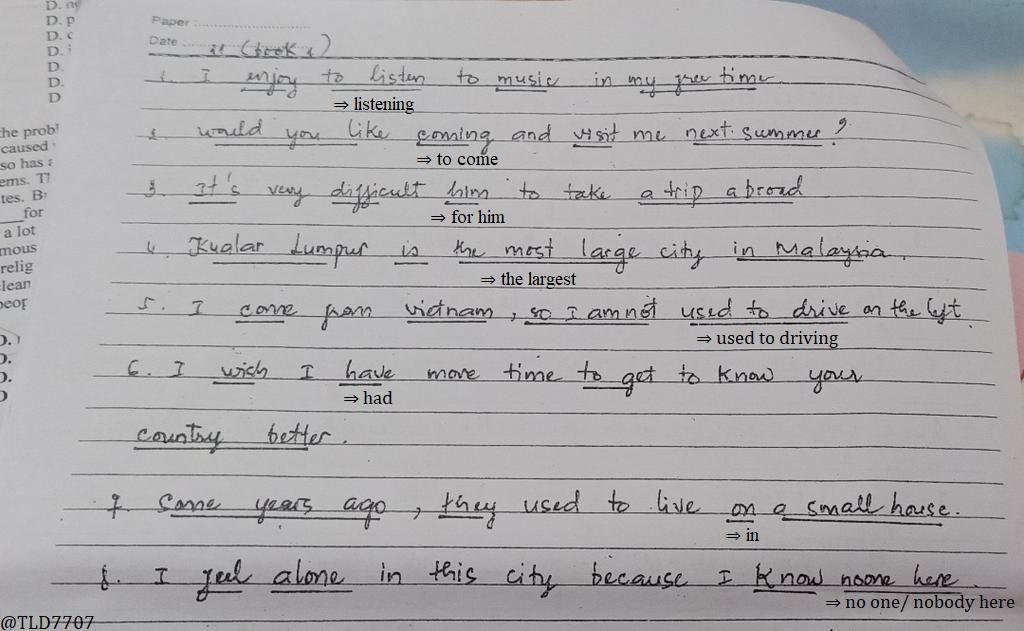 D. n
D. p
D. c
D. i
D.
D.
D
Paper
Date
(book 1)
1. I enjoy to listen to music in my free time
⇒ listening
2. would you like coming and visit me next summer?
⇒ to come
3. It's very difficult him to take a trip abroad
⇒ for him
4. Kualar Lumpur is the most large city in Malaysia.
⇒ the largest
5. I come from vietnam, so I am not used to drive on the left
⇒ used to driving
6. I wish I have more time to get to know your
⇒ had
country better.
7. Some years ago, they used to live on a small house.
⇒ in
8. I feel alone in this city because I know noone here.
⇒ no one/ nobody here
@TLD7707
the prob
caused
so has
ems. T
tes. B
for
a lot
mous
relig
lean
peop
D.
D.
D.